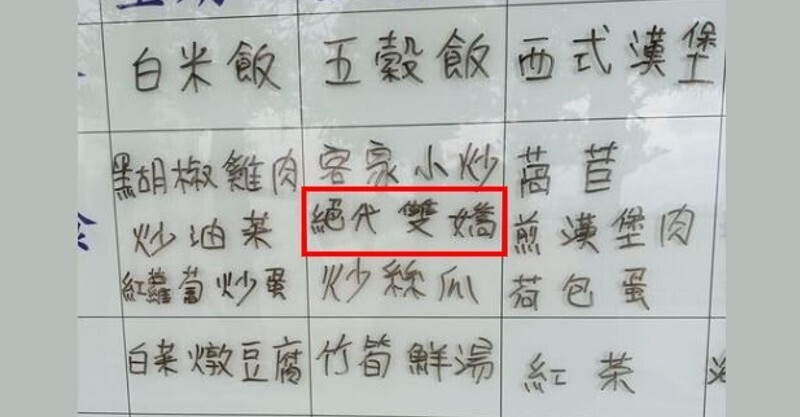 白米飯
五穀飯
西式漢堡
黑胡椒雞肉
客家小炒
萵苣
炒油菜
絕代雙嬌
煎漢堡肉
紅蘿蔔炒蛋
炒絲瓜
荷包蛋
白菜燉豆腐
竹筍鮮湯
紅茶